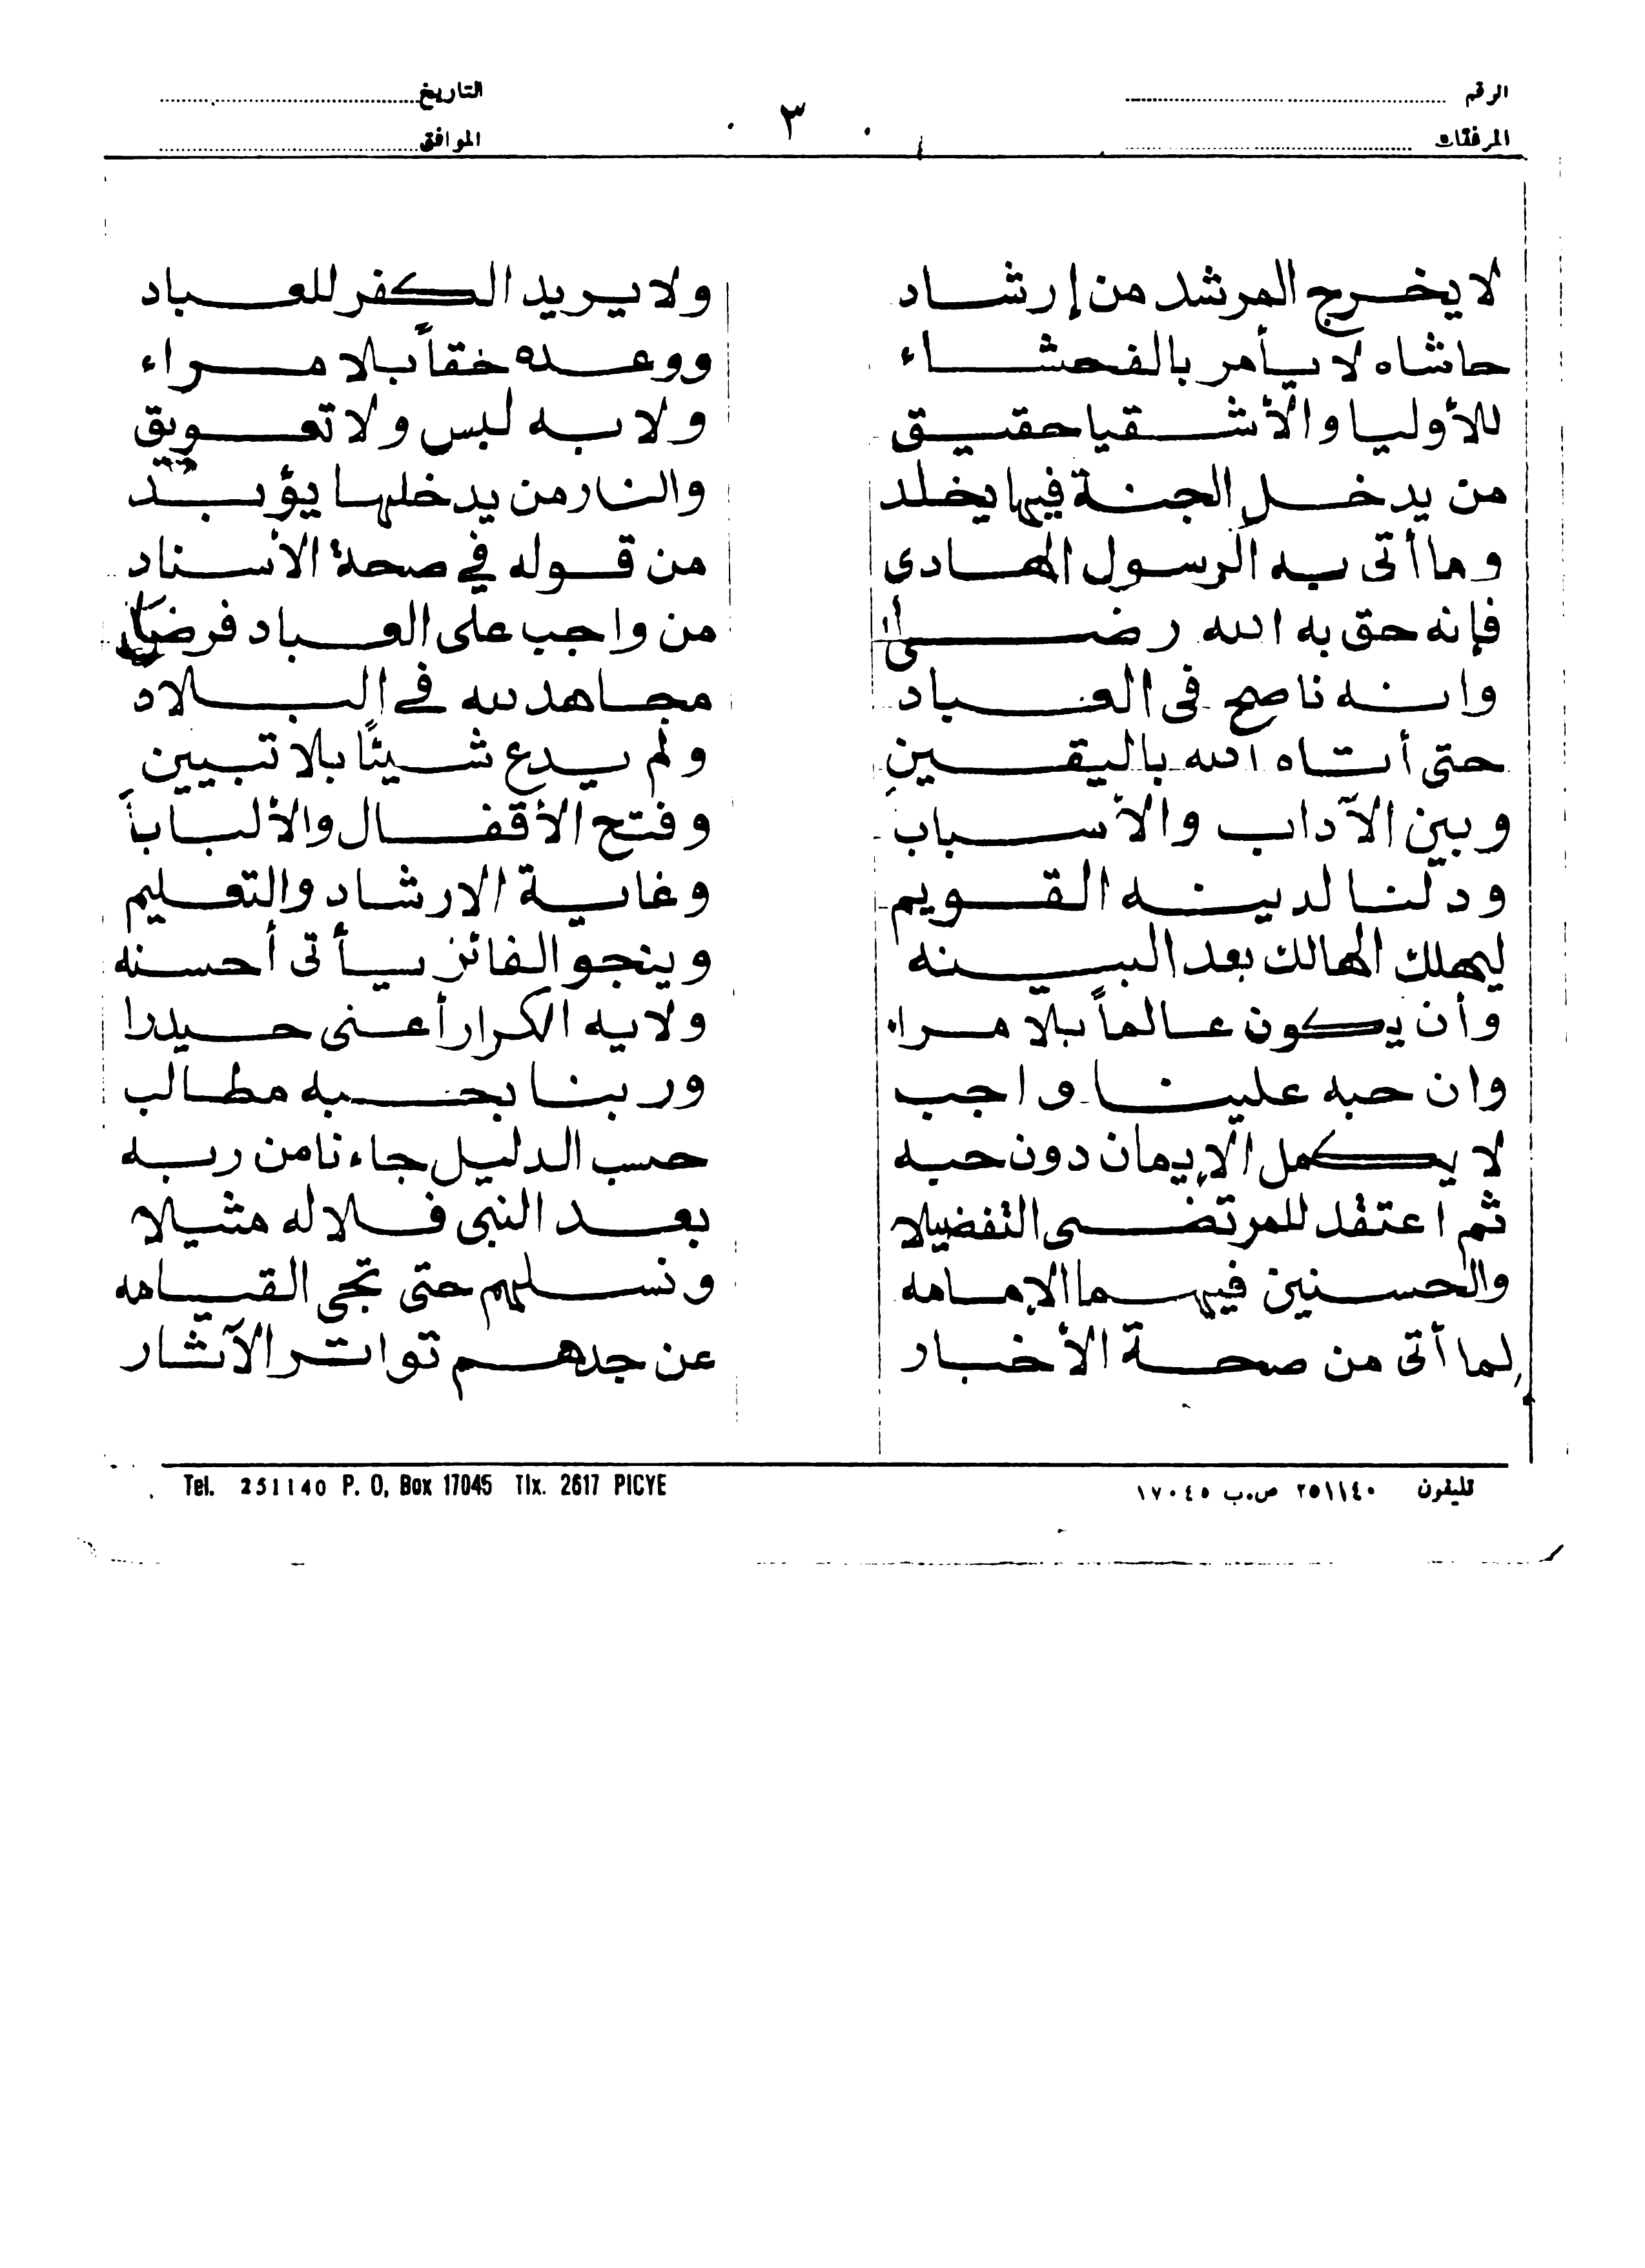 الرقم ........ ٣ التاريخ ........
المرفقات ........ الموافق ........
لا يخرج المرشد من إرشاد ولا يريد الكفر للعباد
حاشاه لا يأمر بالفحشاء ووعده حقاً بلا مراء
للأوليا والأشقيا حقيق ولا به لبس ولا تعويق
من يدخل الجنة فيها يخلد والنار من يدخلها يؤبد
وما أتى به الرسول الهادى من قوله في صحة الأسناد
فإنه حق به الله رضى من واجب على العباد
وانه ناصح فى العباد مجاهد لله في البلاد
حتى أتاه الله باليقين ولم يدع شيئًا بلا تبيين
وبين الآداب والأسباب وفتح الأقفال والألباباً
ودلنا لدينه القويم وغاية الارشاد والتعليم
ليهلك الهالك بعد البينه وينجو الفائز يأتى أحسنه
وأن يكون عالماً بلا مراء ولايه الكرار أعنى حيدرا
وان حبه علينا واجب وربنا بحبه مطالب
لا يكمل الإيمان دون حبه حسب الدليل جاءنا من ربه
ثم اعتقد للمرتضى التفضيلا بعد النبى فلا له مثيلا
والحسنين فيهما الإمامه ونسلهم حتى تجى القيامه
لما أتى من صحة الأخبار عن جدهم تواتر الآثار
تليفون ٢٥١١٤٠ ص.ب ١٧٠٤٥ Tel. 251140 P. O, Box 17045 Tlx. 2617 PICYE